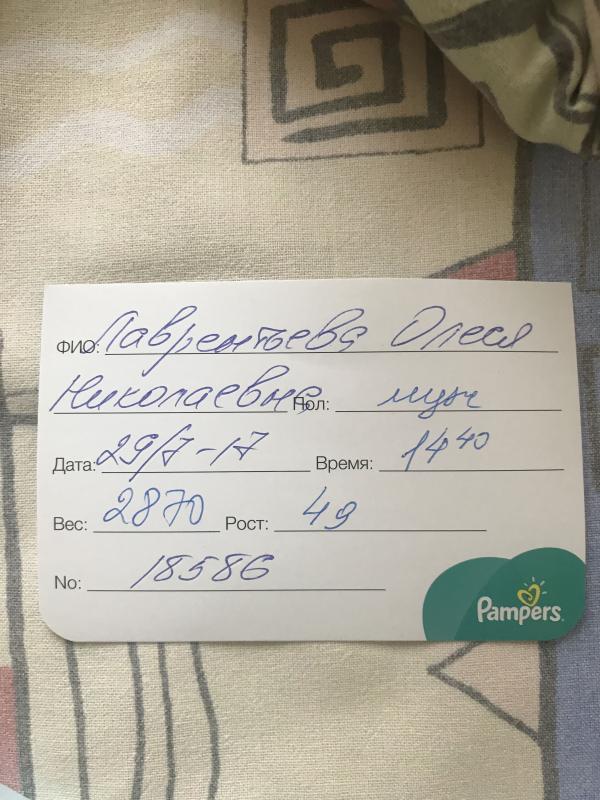 ФИО: Лаврентьева Олеся
Николаевна Пол: муж
Дата: 29/7-17 Время: 14 40
Вес: 2870 Рост: 49
No: 18586
Pampers